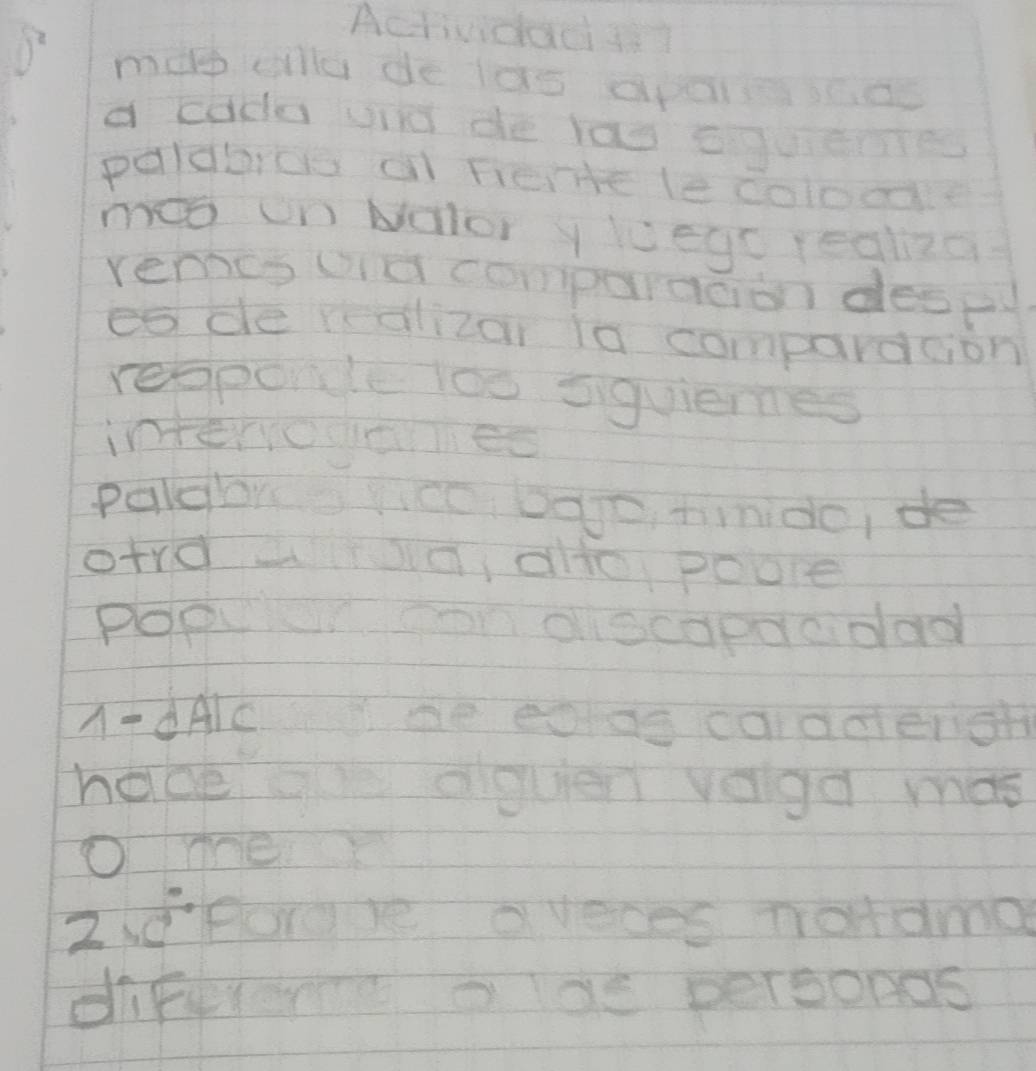 Actividad #1
mas alla de las apariencias
a cada una de las siguientes
palabras al frente le colocare
mos un valor y luego realiza
remos una comparación despu
es de realizar la comparación
responde los siguientes
interrogantes
palabras rico, bajo, timido, de
otra cultura, alto, pobre
popular con discapacidad
1-¿Alg de estas caracterist
hace que alguien valga mas
o me
2.¿Porque aveces tratamo
diferente a las personas